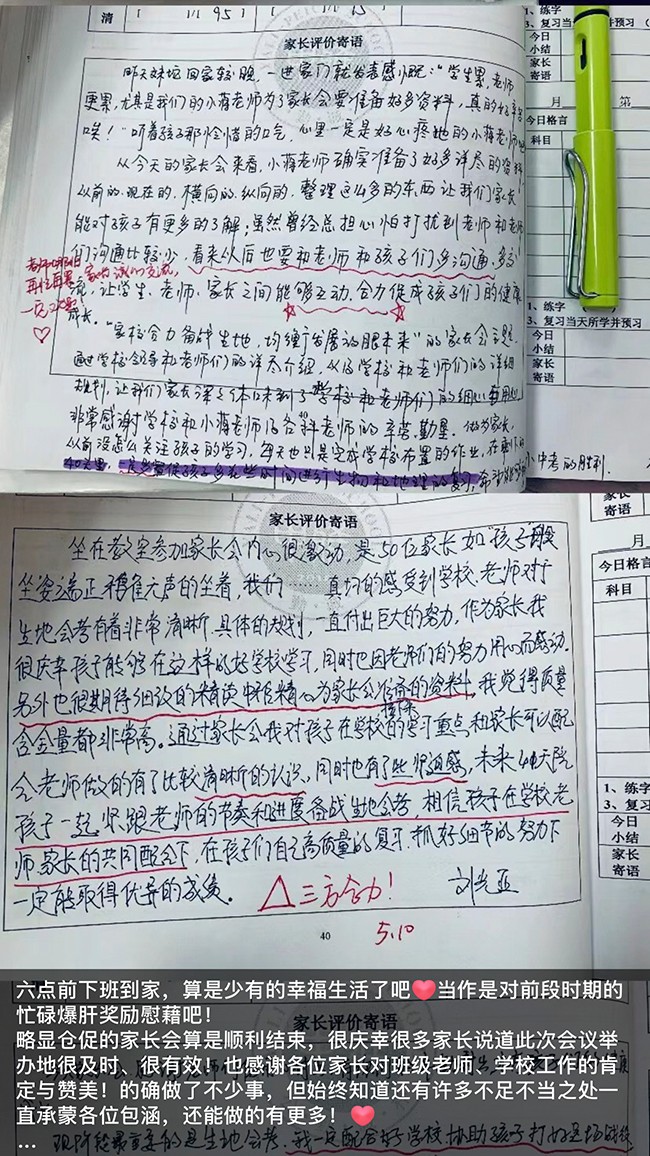 清
家长评价寄语
1、练字
3、复习当天所学并预习
今日
小结
家长
寄语
月
第
今日格言
科目
昨天妹妹回家较晚，一进家门就发表感慨：“学生累，老师
更累，尤其是我们的小蒋老师为了家长会要准备好多资料，真的好辛苦
唉！”听着孩子那怜惜的口气，心里一定是好心疼她的小蒋老师
从今天的家长会来看，小蒋老师确实准备了好多详尽的资料
从前的、现在的、横向的、纵向的。整理这么多的东西让我们家长
能对孩子有更多的了解；虽然曾经总担心怕打扰到老师和老师
们沟通比较少，看来以后也要和老师和孩子们多沟通，多交
流，让学生、老师、家长之间能够互动，合力促成孩子们的健康
成长。
“家校合力备战生地，均衡发展放眼未来”的家长会主题
通过学校领导和老师们的详尽介绍，从你学校和老师们的详细
规划，让我们家长深深体味到了学校和老师们的细心和用心
非常感谢学校和小蒋老师及各科老师的辛苦、勤奋。做为家长，
以前没怎么关注孩子的学习，每天也只是完成学校布置的作业，在
40天里，
时间进行生物和地理的复习
中考的胜利.
1、练字
3、复习当天所学并预习
今日
小结
家长
寄语
40
家长评价寄语
坐在教室参加家长会内心很激动，是50位家长如“孩子”般
坐姿端正、鸦雀无声的坐着，我们……真切的感受到学校、老师对于
生地会考有着非常清晰、具体的规划，一直付出巨大的努力，作为家长我
很庆幸孩子能够在这样的好学校学习，同时也因老师们的努力用心而感动。
另外也很期待细致的蒋老师精心为家长会准备的资料，我觉得质量
含金量都非常高。通过家长会我对孩子在学校的学习重点和家长可以配
合老师做的有了比较清晰的认识，同时也有了紧迫感，未来40天陪
孩子一起紧跟老师的节奏和进度备战生地会考，相信孩子在学校、老
师、家长的共同配合下，在孩子们自己高质量的复习、抓好细节的努力下
一定能取得优异的成绩。
△三方合力！
5.10
40
家长
寄语
月
今日格言
科目
1、练字
3、复习
今日
小结
家长
寄语
家长评价寄语
六点前下班到家，算是少有的幸福生活了吧❤当作是对前段时期的
忙碌爆肝奖励慰藉吧！
略显仓促的家长会算是顺利结束，很庆幸很多家长说道此次会议举
办地很及时、很有效！也感谢各位家长对班级老师、学校工作的肯
定与赞美！的确做了不少事，但始终知道还有许多不足不当之处一
直承蒙各位包涵，还能做的有更多！❤
...
现阶段最重要的是生地会考，我一定配合好学校，协助孩子打好